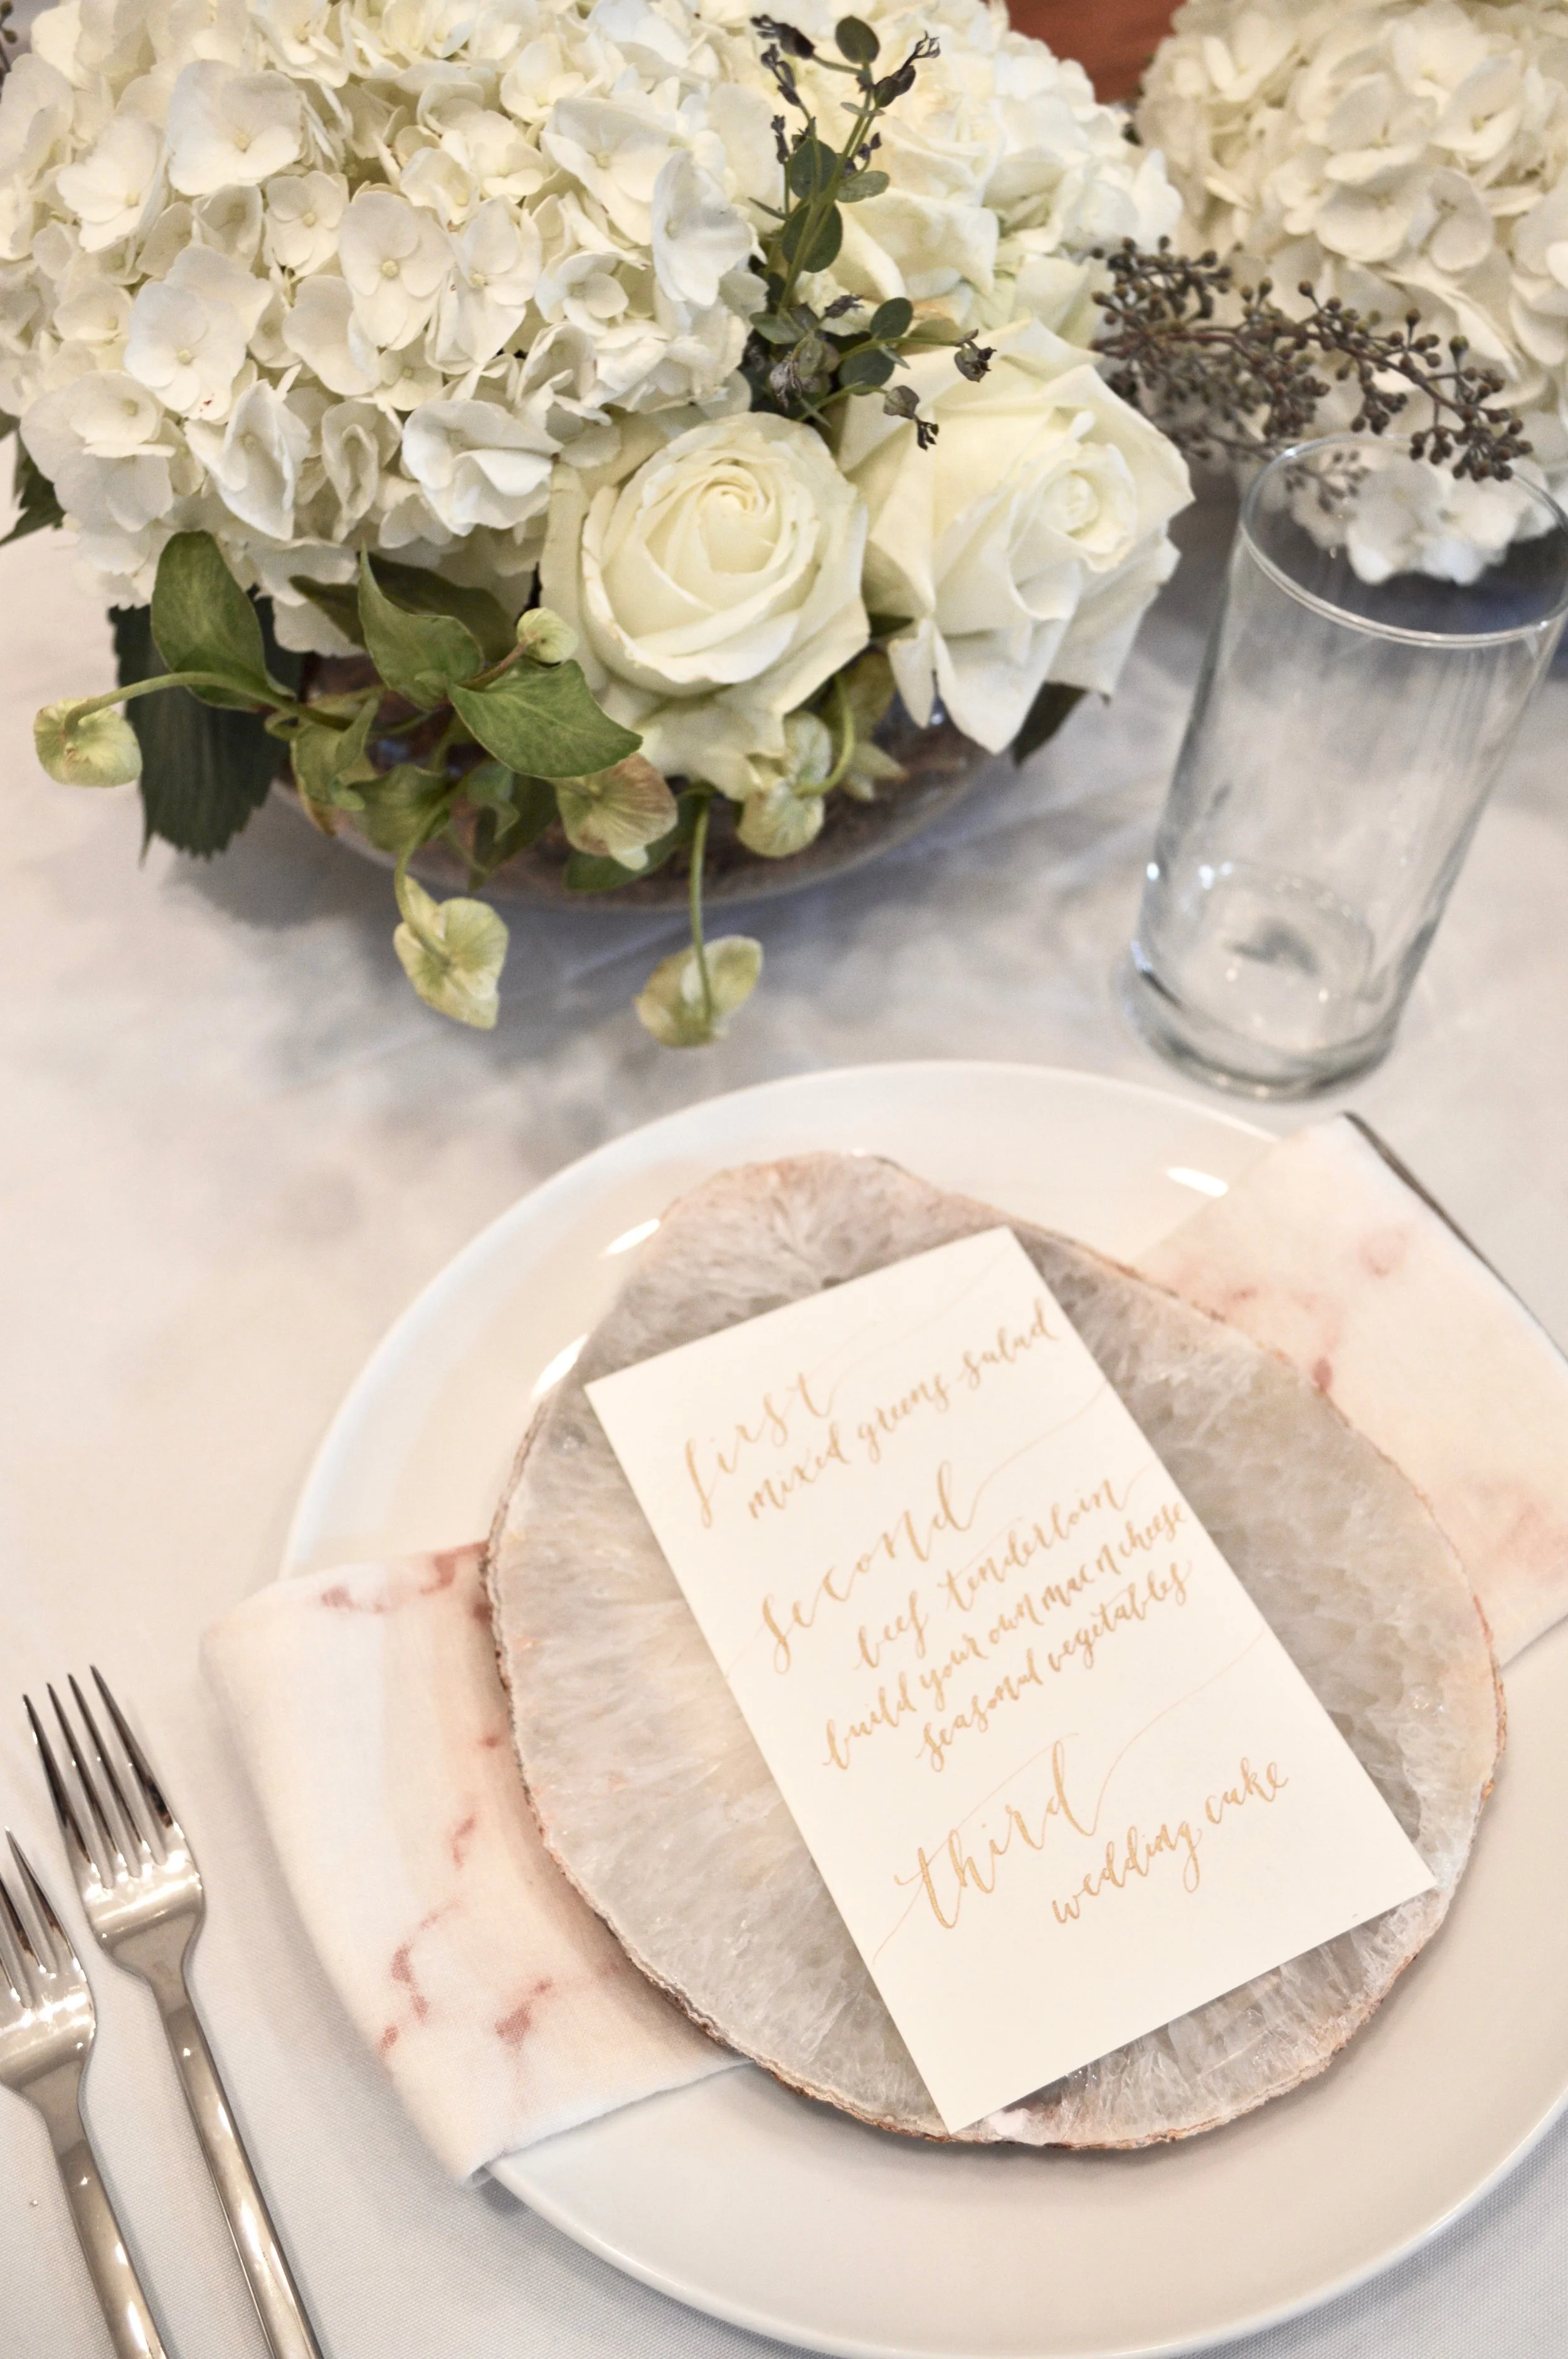 first
mixed greens salad
second
beef tenderloin
build your own mac n cheese
seasonal vegetables
third
wedding cake